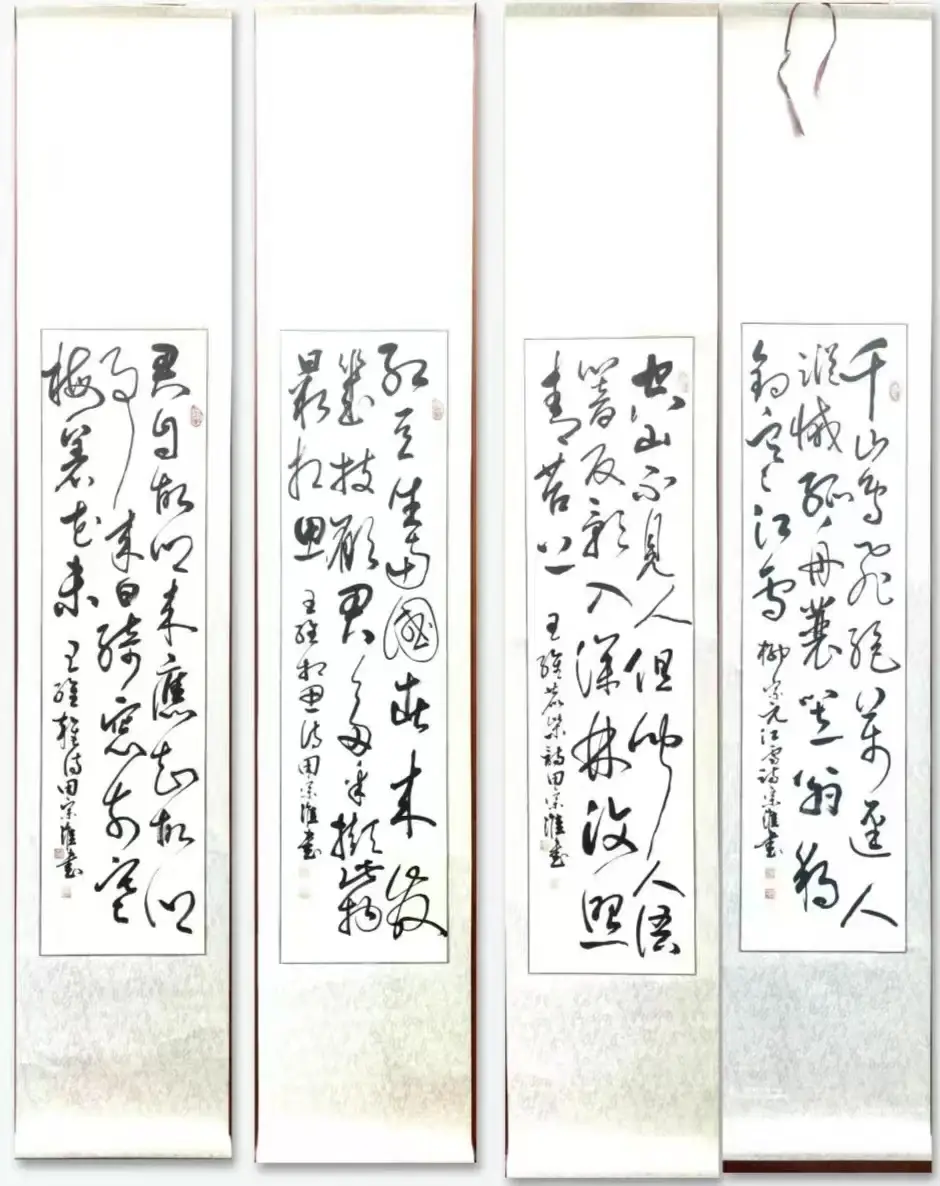 千山鸟飞绝万逕人
蹤滅孤舟蓑笠翁独
钓寒江雪 柳宗元江雪诗宗淮书
空山不見人但闻人语
響反影入深林復照
青苔上 王維鹿柴诗田宗淮书
红豆生南國春来发
幾枝願君多采撷此物
最相思 王维相思诗田宗淮书
君自故乡来應知故乡
事来日绮窗前寒
梅著花未 王维杂诗田宗淮书